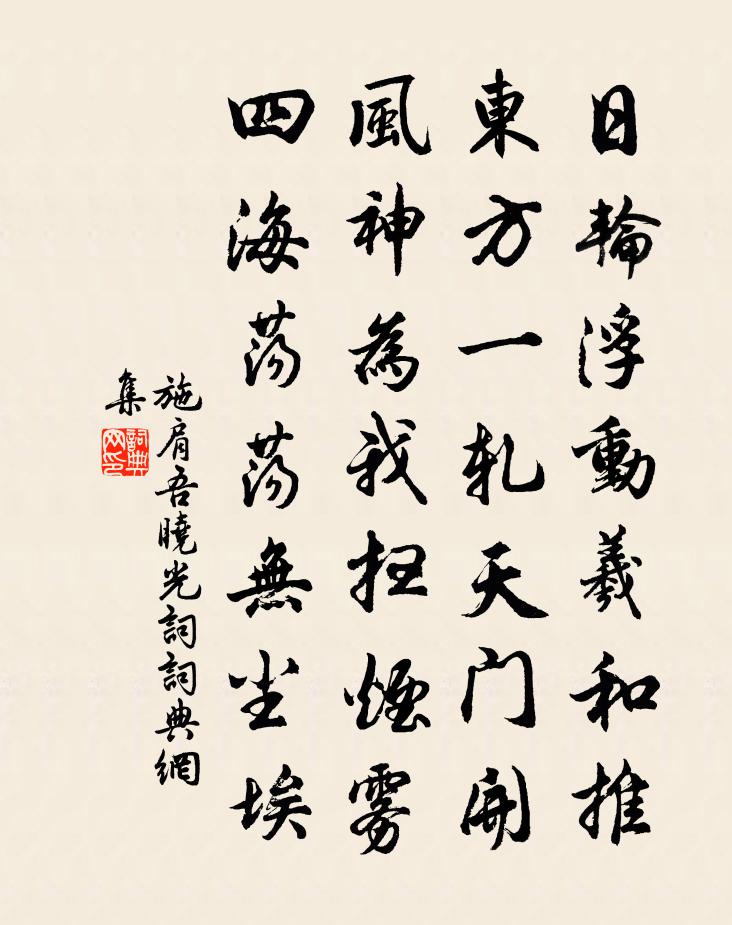 日輪浮動羲和推
東方一軋天門開
風神為我掃煙霧
四海蕩蕩無尘埃
施肩吾曉光詞詞典網
集
詞典
网印